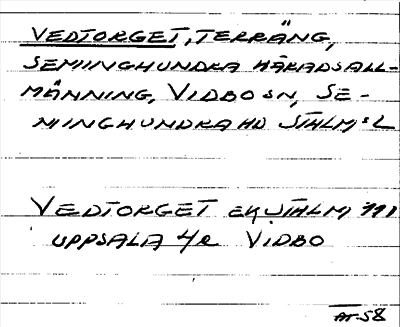 VEDTORGET, TERRÄNG,
SEMINGHUNDRA HÄRADSALL-
MÄNNING, VIDBO SN, SE-
MINGHUNDRA HD STHLM:S L
VEDTORGET EK STHLM 1
UPPSALA 4e VIDBO
AT-58